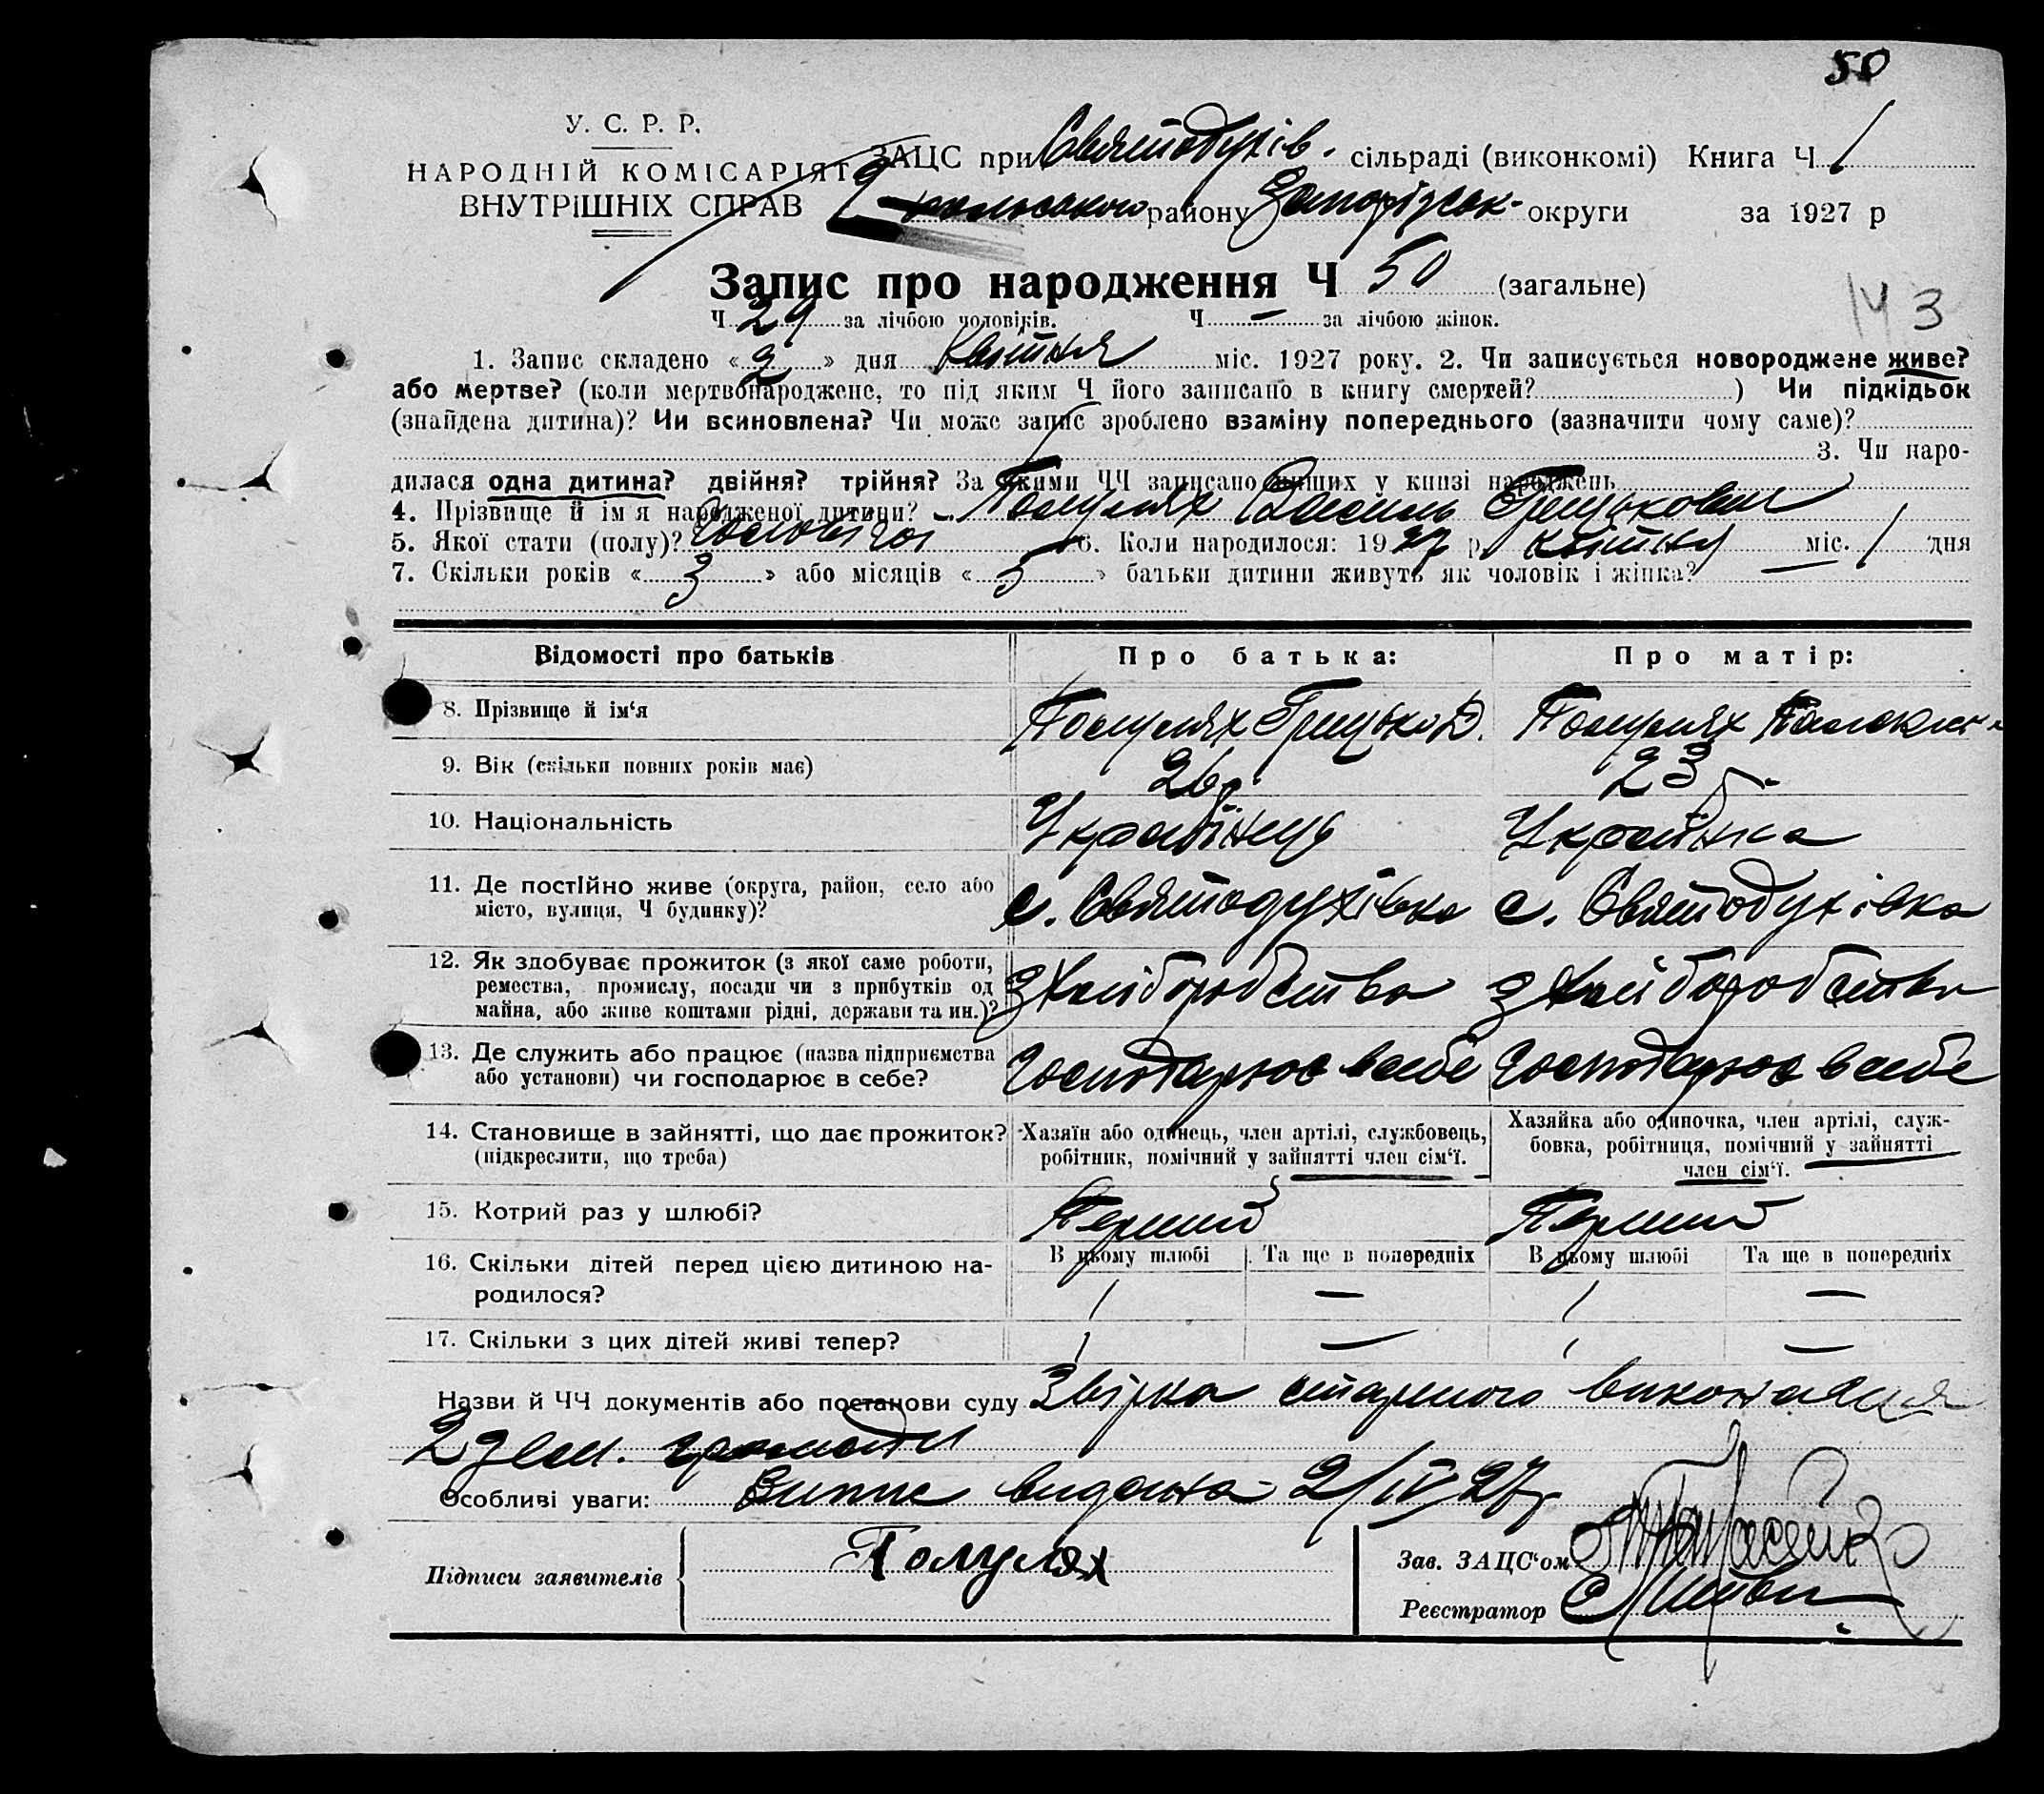 50
У. С. Р. Р.
НАРОДНІЙ КОМІСАРІЯТ
ВНУТРІШНІХ СПРАВ
ЗАЦС при Святодухів. сільраді (виконкомі) Книга Ч 1
району Запорізськ. округи за 1927 р
Запис про народження Ч 50 (загальне)
143
Ч 29 за лічбою чоловіків. Ч — за лічбою жінок.
1. Запис складено «2» дня Квітня міс. 1927 року. 2. Чи записується новороджене живе?
або мертве? (коли мертвонароджене, то під яким Ч його записано в книгу смертей? ) Чи підкідьок
(знайдена дитина)? Чи всиновлена? Чи може запис зроблено взаміну попереднього (зазначити чому саме)?
3. Чи наро-
дилася одна дитина? двійня? трійня? За якими ЧЧ записано инших у книзі народжень
4. Прізвище й ім'я народженої дитини? Василь Грицькович
5. Якої стати (полу)? 6. Коли народилося: 1927 р. квітня міс. 1 дня
7. Скільки років «3» або місяців « » батьки дитини живуть як чоловік і жінка?
Відомості про батьків
Про батька:
Про матір:
8. Прізвище й ім'я
Грицько
9. Вік (скільки повних років має)
26 р.
23 р.
10. Національність
Українець
Українка
11. Де постійно живе (округа, район, село або
місто, вулиця, Ч будинку)?
с. Святодухівка
с. Святодухівка
12. Як здобуває прожиток (з якої саме роботи,
ремества, промислу, посади чи з прибутків од
майна, або живе коштами рідні, держави та ин.)?
З Хліборобства
З Хліборобства
13. Де служить або працює (назва підприємства
або установи) чи господарює в себе?
Господарює в себе
Господарює в себе
14. Становище в зайнятті, що дає прожиток?
(підкреслити, що треба)
Хазяїн або одинець, член артілі, службовець,
робітник, помічний у зайнятті член сім'ї.
Хазяйка або одиночка, член артілі, служ-
бовка, робітниця, помічний у зайнятті
член сім'ї.
15. Котрий раз у шлюбі?
Перший
Перший
16. Скільки дітей перед цією дитиною на-
родилося?
В цьому шлюбі Та ще в попередніх
В цьому шлюбі Та ще в попередніх
1 —
1 —
17. Скільки з цих дітей живі тепер?
1 —
1 —
Назви й ЧЧ документів або постанови суду Звірка
2 зем. громади
Особливі уваги: Випис видана 2/IV 27р
Підписи заявителів
Зав. ЗАЦС'ом
Реєстратор